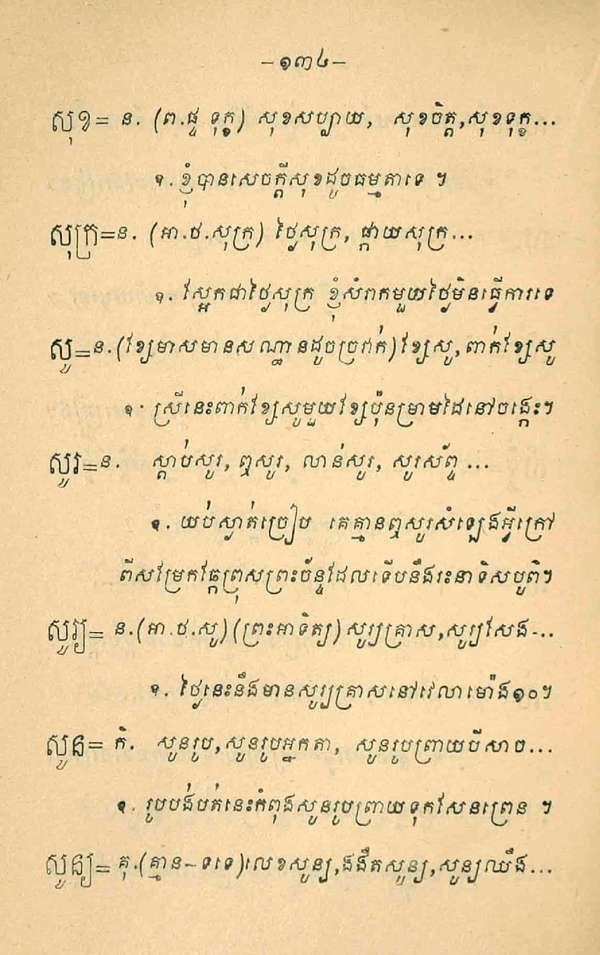 -១៣៤-
សុខ= ន. (ព.ផ្ទ ទុក្ខ) សុខសប្បាយ, សុខចិត្ត,សុខទុក្ខ...
ឧ. ខ្ញុំបានសេចក្ដីសុខដូចធម្មតាទេ ។
សុក្រ=ន. (អា.ថ.សុក្រ) ថ្ងៃសុក្រ, ផ្កាយសុក្រ...
ឧ. ស្អែកជាថ្ងៃសុក្រ ខ្ញុំសំរាកមួយថ្ងៃមិនធ្វើការទេ
សូ=ន.(ខ្សែមាសមានសណ្ឋានដូចច្រវាក់) ខ្សែសូ,ពាក់ខ្សែសូ
ឧ. ស្រីនេះពាក់ខ្សែសូមួយខ្សែប៉ុនម្រាមដៃនៅចង្កេះ។
សូរ=ន. ស្ដាប់សូរ, ឮសូរ, លាន់សូរ, សូរស័ព្ទ ...
ឧ. យប់ស្ងាត់ច្រៀប គេគ្មានឮសូរសំឡេងអ្វីក្រៅ
ពីសម្រែកឆ្កែព្រុសព្រះច័ន្ទដែលទើបនឹងរះនាទិសបូព៌។
សូរ្យ= ន.(អា.ថ.សូ)(ព្រះអាទិត្យ) សូរ្យគ្រាស,សូរ្យសែង-...
ឧ. ថ្ងៃនេះនឹងមានសូរ្យគ្រាសនៅវេលាម៉ោង១០។
សូន= កិ. សូនរូប,សូនរូបអ្នកតា, សូនរូបព្រាយបីសាច...
ឧ. រូបបង់បត់នេះកំពុងសូនរូបព្រាយទុកសែនព្រេន ។
សូន្យ= គុ.(គ្មាន-ទទេ)លេខសូន្យ,ងងឹតសូន្យ,សូន្យឈឹង...